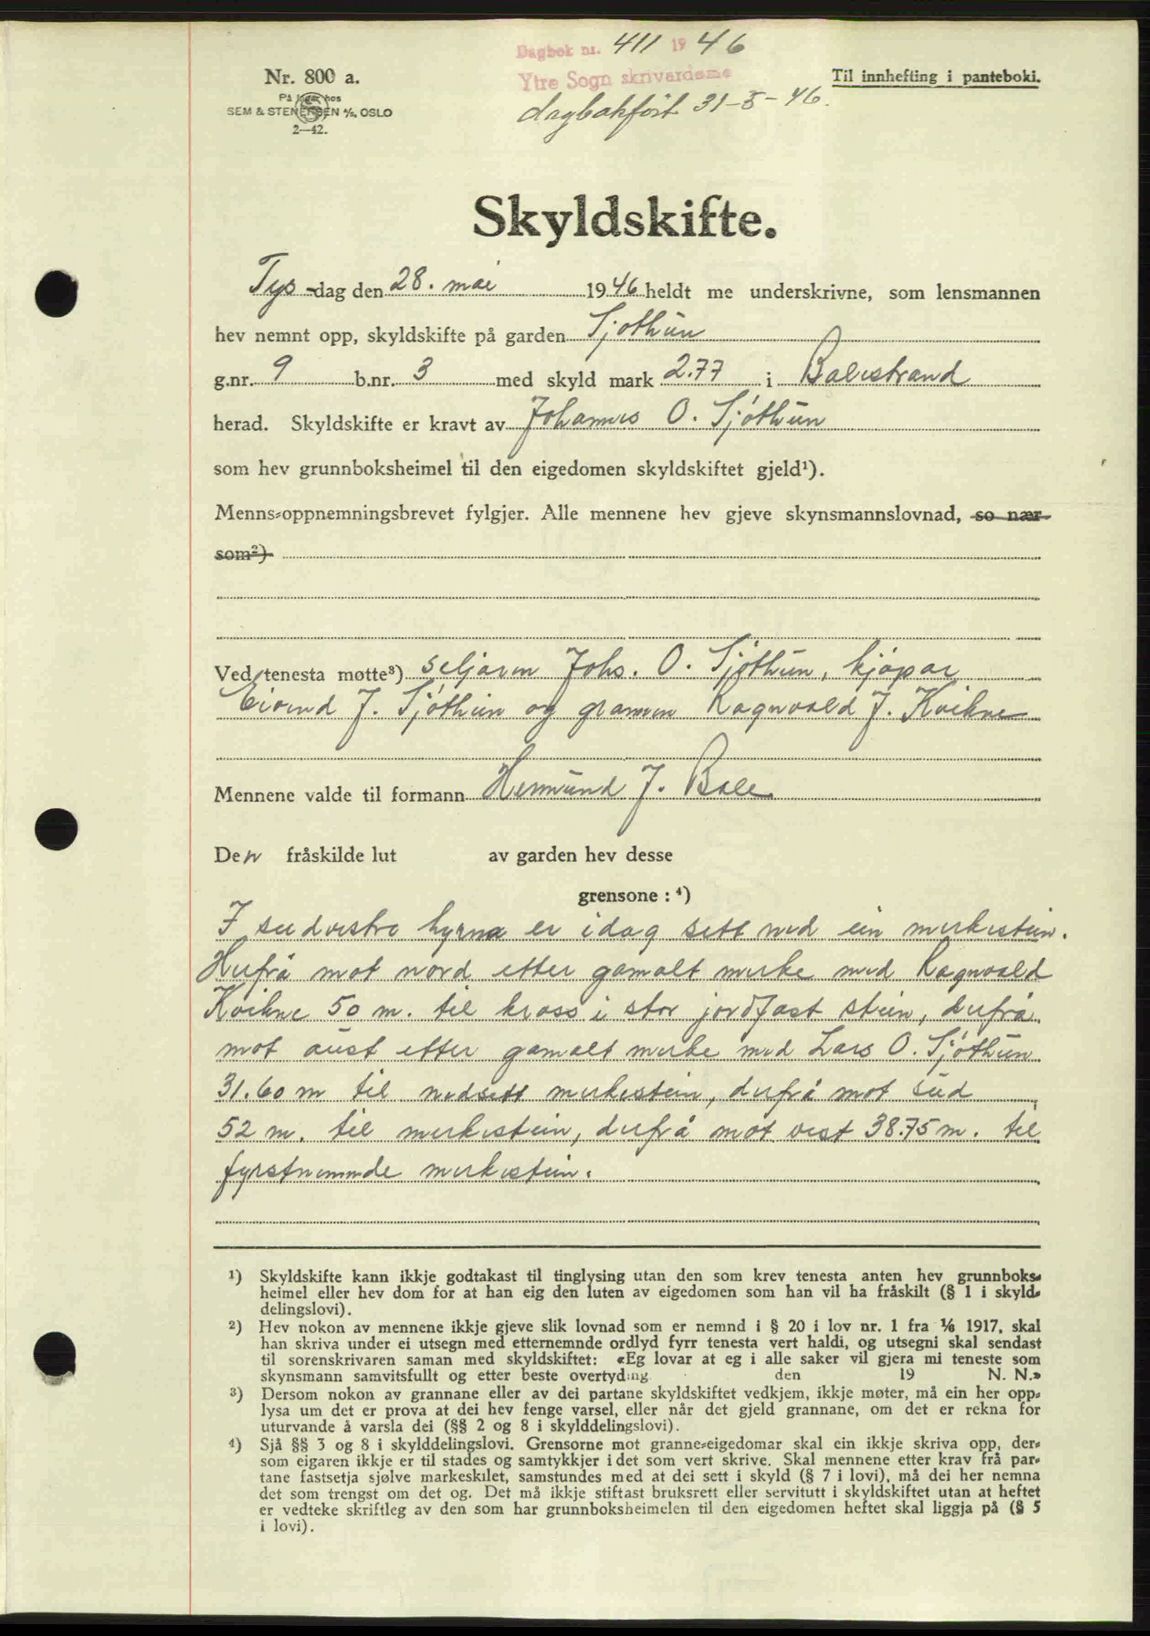 Dagbok nr. 411 1946
Ytre Sogn skrivardøme
dagbokført 31-5-46.
Nr. 800 a.
På lager hos
SEM & STENERSEN A/S, OSLO
2—42.
Til innhefting i panteboki.
Skyldskifte.
Tys-dag den 28. mai 1946 heldt me underskrivne, som lensmannen
hev nemnt opp, skyldskifte på garden Sjøthun
g.nr. 9 b.nr. 3 med skyld mark 2.77 i Balestrand
herad. Skyldskifte er kravt av Johannes O. Sjøthun
som hev grunnboksheimel til den eigedomen skyldskiftet gjeld¹).
Menns-oppnemningsbrevet fylgjer. Alle mennene hev gjeve skynsmannslovnad, so nær
som²)
Ved tenesta møtte³) seljaren Johs. O. Sjøthun, kjøpar
Eivind J. Sjøthun og grannen Ragnvald J. Kvikne
Mennene valde til formann Hermund J. Bale
Den fråskilde lut av garden hev desse
grensone : ⁴)
I sudvestre hyrna er idag sett ned ein merkestein.
Herfrå mot nord etter gamalt merke med Ragnvald
Kvikne 50 m. til kross i stor jordfast stein, derfrå
mot aust etter gamalt merke med Lars O. Sjøthun
31.60 m til nedsett merkestein, derfrå mot sud
52 m. til merkestein, derfrå mot vest 38.75 m. til
fyrstnemnde merkestein.
¹) Skyldskifte kann ikkje godtakast til tinglysing utan den som krev tenesta anten hev grunnboks-
heimel eller hev dom for at han eig den luten av eigedomen som han vil ha fråskilt (§ 1 i skyld-
delingslovi).
²) Hev nokon av mennene ikkje gjeve slik lovnad som er nemnd i § 20 i lov nr. 1 fra 1/6 1917, skal
han skriva under ei utsegn med etternemnde ordlyd fyrr tenesta vert haldi, og utsegni skal sendast
til sorenskrivaren saman med skyldskiftet: «Eg lovar at eg i alle saker vil gjera mi teneste som
skynsmann samvitsfullt og etter beste overtyding den 19 N. N.»
³) Dersom nokon av grannane eller av dei partane skyldskiftet vedkjem, ikkje møter, må ein her opp-
lysa um det er prova at dei hev fenge varsel, eller når det gjeld grannane, om det er rekna for
uturvande å varsla dei (§§ 2 og 8 i skylddelingslovi).
⁴) Sjå §§ 3 og 8 i skylddelingslovi. Grensorne mot granne-eigedomar skal ein ikkje skriva opp, der-
som eigaren ikkje er til stades og samtykkjer i det som vert skrive. Skal mennene etter krav frå par-
tane fastsetja sjølve markeskilet, samstundes med at dei sett i skyld (§ 7 i lovi), må dei her nemna
det som trengst om det og. Det må ikkje stiftast bruksrett eller servitutt i skyldskiftet utan at heftet
er vedteke skriftleg av den som har grunnboksheimelen til den eigedomen heftet skal liggja på (§ 5
i lovi).